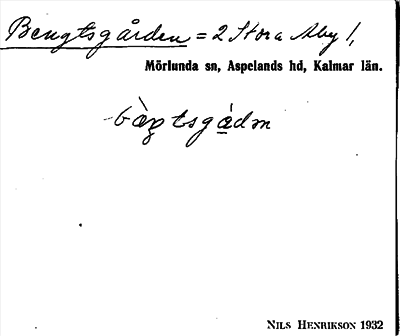 Bengtsgården = 2 Stora Aby 1,
Mörlunda sn, Aspelands hd, Kalmar län.
NILS HENRIKSON 1932